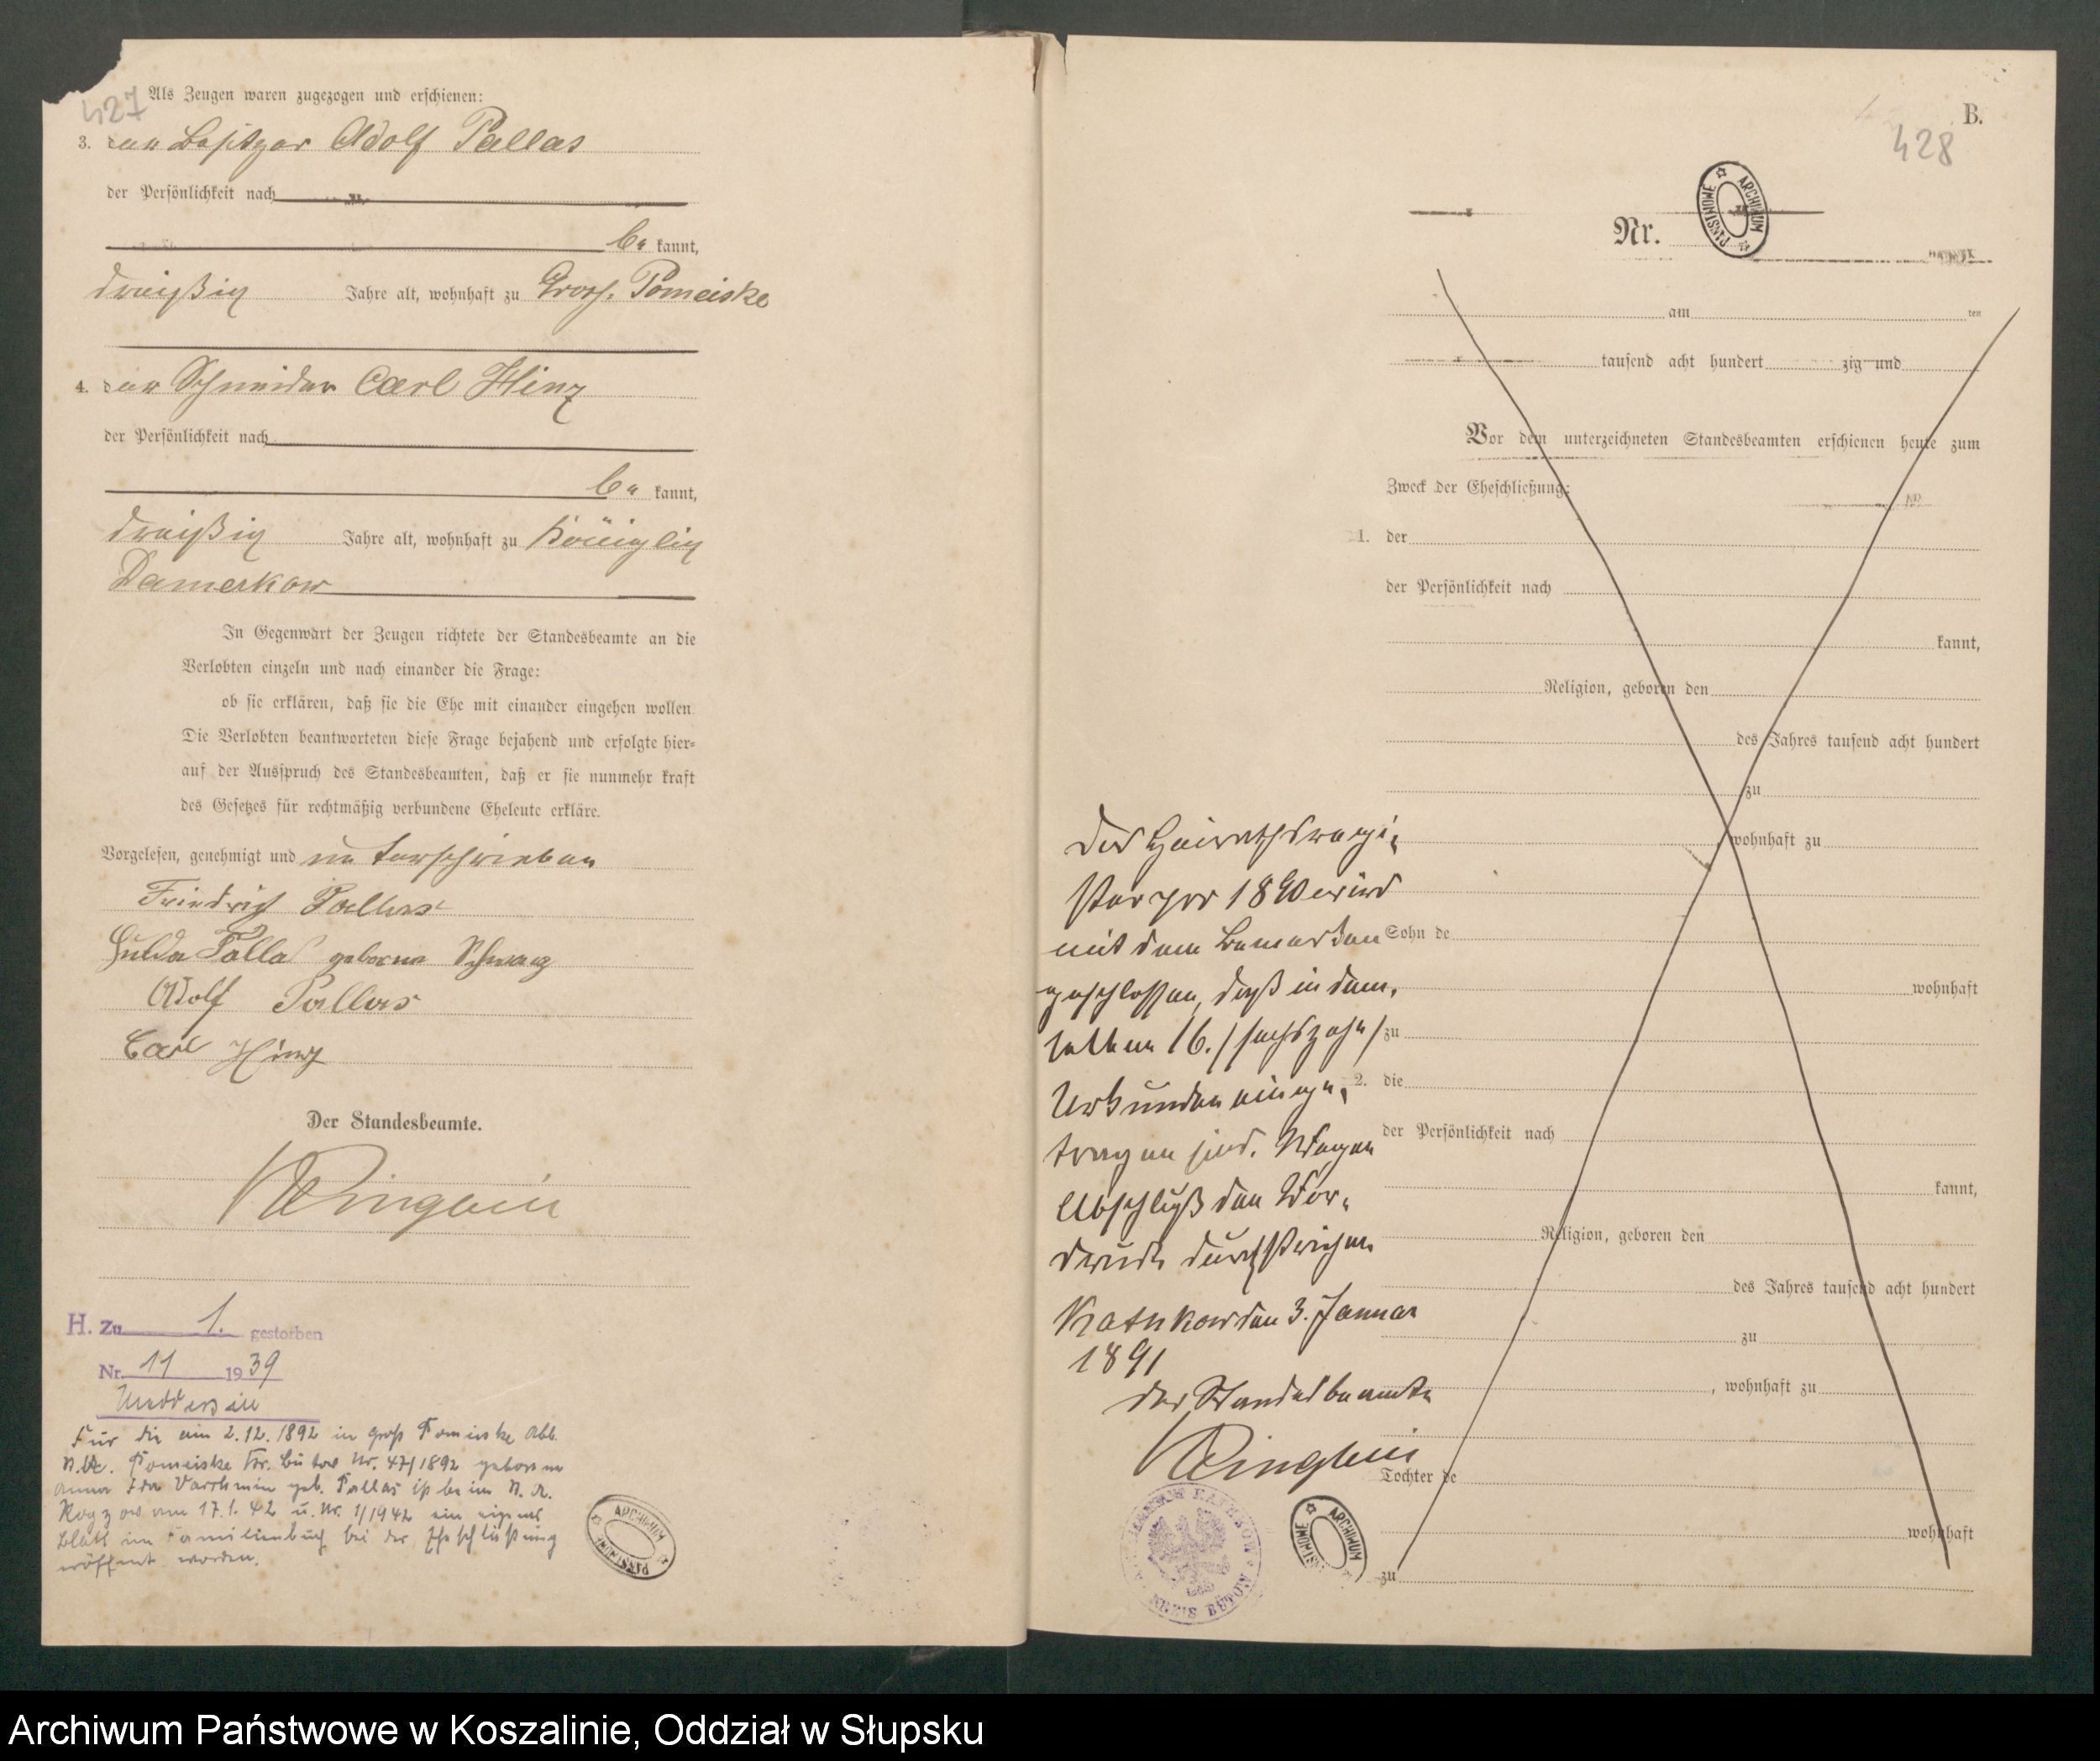 427
Als Zeugen waren zugezogen und erschienen:
3. den Besitzer Adolf Pallas
der Persönlichkeit nach
be kannt,
dreißig Jahre alt, wohnhaft zu Gross. Pomeiske
4. den Schneider Carl Hinz
der Persönlichkeit nach
be kannt,
dreißig Jahre alt, wohnhaft zu Königlich
Damerkow
In Gegenwart der Zeugen richtete der Standesbeamte an die
Verlobten einzeln und nach einander die Frage:
ob sie erklären, daß sie die Ehe mit einander eingehen wollen.
Die Verlobten beantworteten diese Frage bejahend und erfolgte hier-
auf der Ausspruch des Standesbeamten, daß er sie nunmehr kraft
des Gesetzes für rechtmäßig verbundene Eheleute erkläre.
Vorgelesen, genehmigt und unterschrieben
Friedrich Pallas
Hulda Pallas geborene
Adolf Pallas
Carl Hinz
Der Standesbeamte.
H. Zu 1. gestorben
Nr. 11 1939
Für die am 2.12.1892 in Groß Pomeiske Abb.
St.A. Pomeiske Kr. Bütow Nr. 47/1892 geborene
Anna Ida Varchmin geb. Pallas ist beim St. A.
am 17.1.42 u. Nr. 1/1942 ein eigenes
Blatt im Familienbuch bei der Eheschließung
eröffnet worden.
ARCHIWUM PAŃSTWOWE
B.
428
ARCHIWUM PAŃSTWOWE
Nr.
am ten
tausend acht hundert zig und
Vor dem unterzeichneten Standesbeamten erschienen heute zum
Zweck der Eheschließung:
1. der
der Persönlichkeit nach
kannt,
Religion, geboren den
des Jahres tausend acht hundert
zu
wohnhaft zu
Sohn de
wohnhaft
zu
2. die
der Persönlichkeit nach
kannt,
Religion, geboren den
des Jahres tausend acht hundert
zu
, wohnhaft zu
Tochter de
wohnhaft
zu
Das Heirathsregi-
ster pro 1890 wird
mit dem Bemerken
geschlossen, daß in dem-
selben 16. /sechszehn/
Urkunden einge-
tragen sind. Wegen
Abschluß den Vor-
druck durchstrichen
Katkow den 3. Januar
1891
Der Standesbeamte
KATKOW KREIS BÜTOW
ARCHIWUM PAŃSTWOWE
Archiwum Państwowe w Koszalinie, Oddział w Słupsku